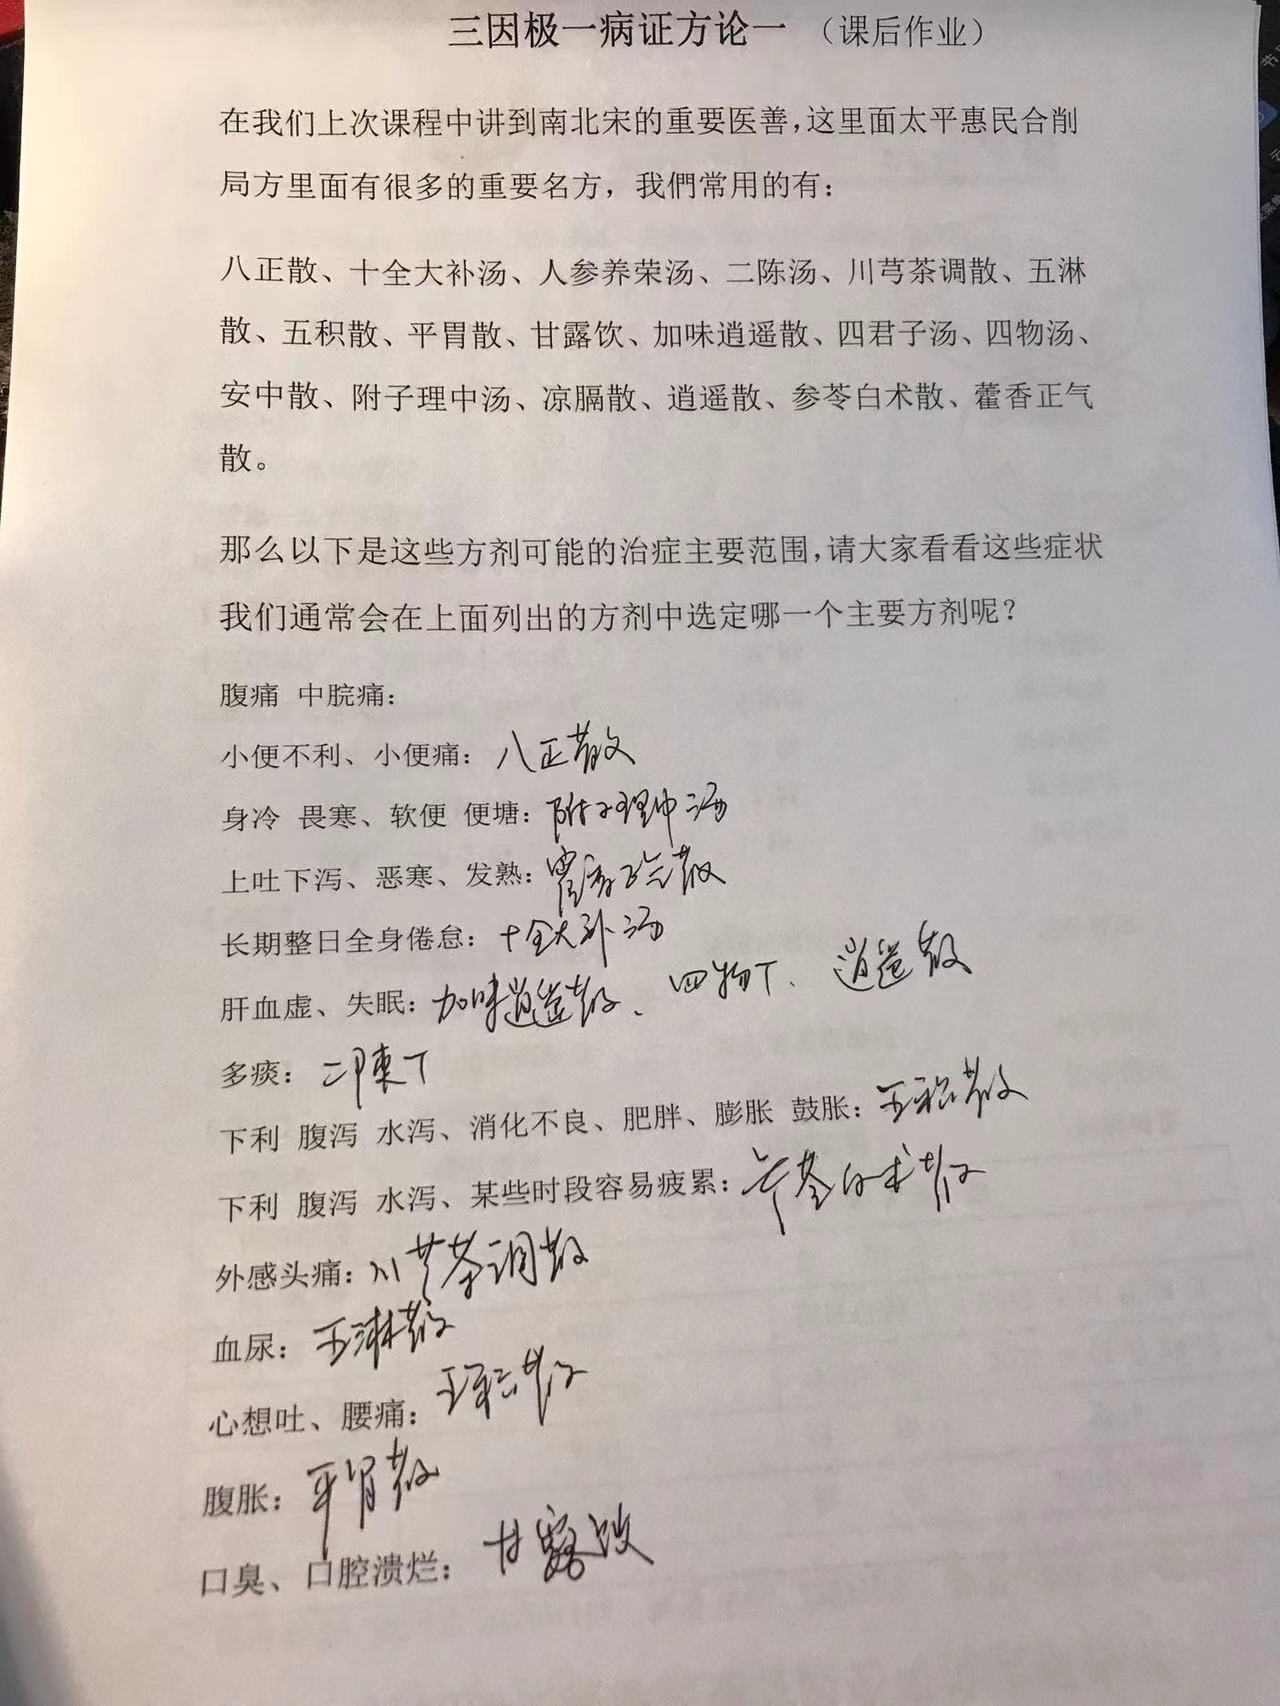 三因极一病证方论一 （课后作业）
在我们上次课程中讲到南北宋的重要医善，这里面太平惠民合削
局方里面有很多的重要名方，我們常用的有：
八正散、十全大补汤、人参养荣汤、二陈汤、川芎茶调散、五淋
散、五积散、平胃散、甘露饮、加味逍遥散、四君子汤、四物汤、
安中散、附子理中汤、凉膈散、逍遥散、参苓白术散、藿香正气
散。
那么以下是这些方剂可能的治症主要范围，请大家看看这些症状
我们通常会在上面列出的方剂中选定哪一个主要方剂呢？
腹痛 中脘痛：
小便不利、小便痛：八正散
身冷 畏寒、软便 便塘：附子理中汤
上吐下泻、恶寒、发熟：藿香正气散
长期整日全身倦怠：十全大补汤
肝血虚、失眠：加味逍遥散、四物T、逍遥散
多痰：二陳T
下利 腹泻 水泻、消化不良、肥胖、膨胀 鼓胀：五积散
下利 腹泻 水泻、某些时段容易疲累：参苓白术散
外感头痛：川芎茶调散
血尿：五淋散
心想吐、腰痛：五积散
腹胀：平胃散
口臭、口腔溃烂：甘露饮